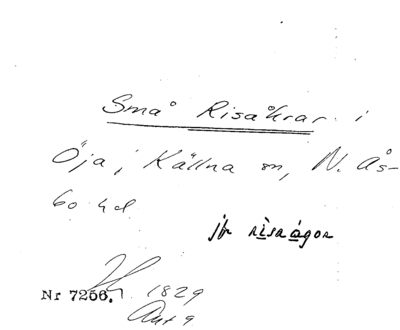 Små Risåkrar i
Öja, Källna sn, N. Ås-
bo hd.
jfr risaågor
Nr 7256. 1829
Avt 9